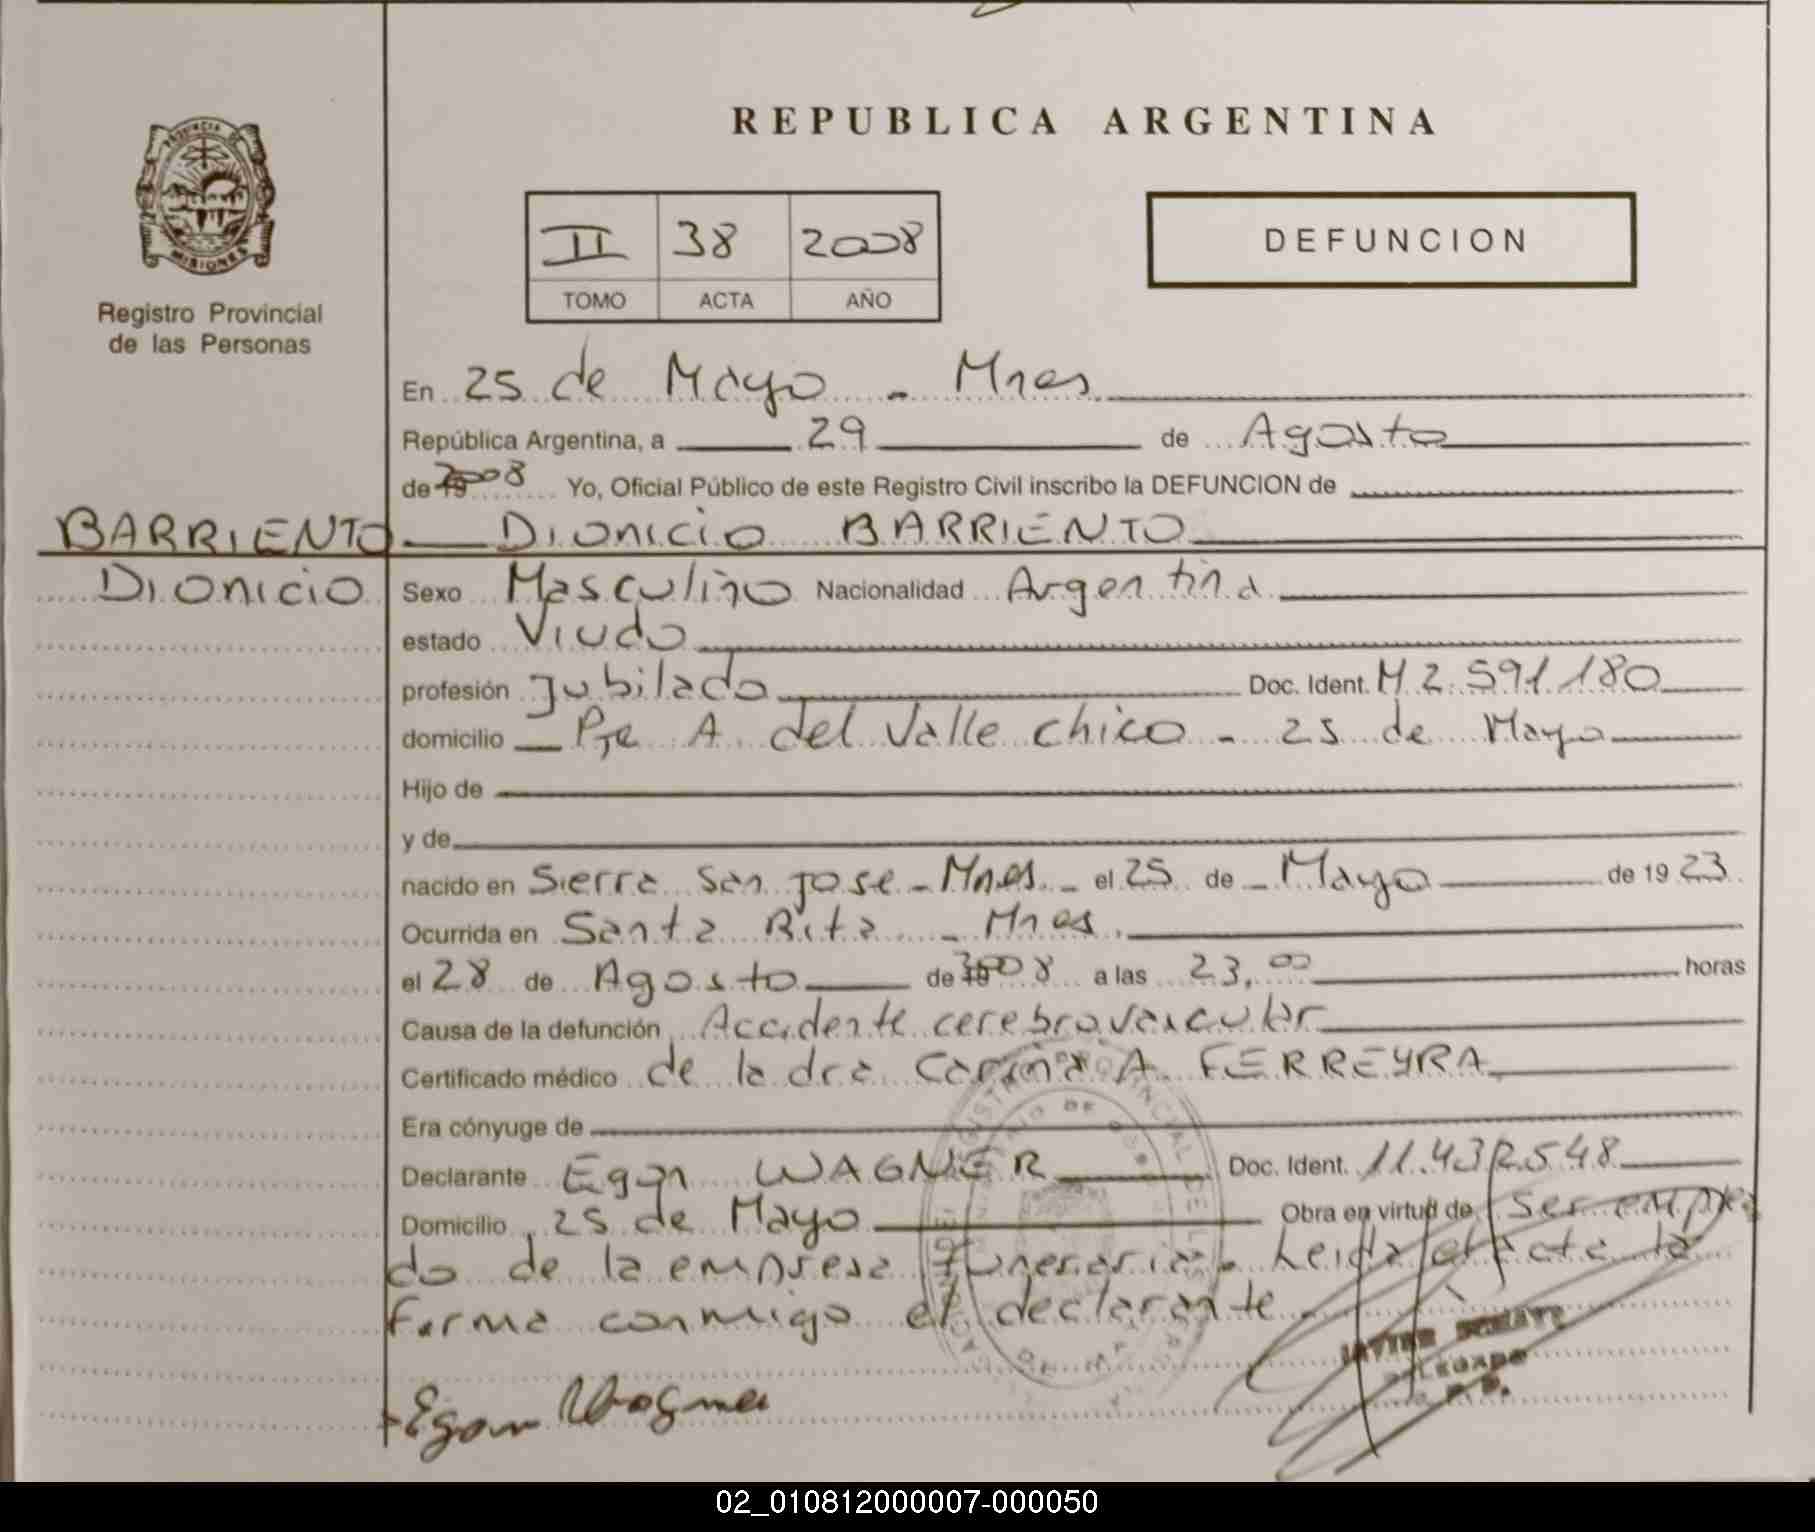 REPUBLICA ARGENTINA
PROVINCIA DE
MISIONES
Registro Provincial
de las Personas
II 38 2008
TOMO ACTA AÑO
DEFUNCION
En 25 de Mayo - Mnes
República Argentina, a 29 de Agosto
de 2008 Yo, Oficial Público de este Registro Civil inscribo la DEFUNCION de
BARRIENTO Dionicio BARRIENTO
Dionicio Sexo Masculino Nacionalidad Argentina
estado Viudo
profesión Jubilado Doc. Ident. M 2.591.180
domicilio Pje A. del Valle chico - 25 de Mayo
Hijo de
y de
nacido en Sierra San Jose - Mnes - el 25 de - Mayo de 1923
Ocurrida en Santa Rita - Mnes.
el 28 de Agosto de 2008 a las 23,00 horas
Causa de la defunción Accidente cerebrovascular
Certificado médico de la dra Carina A FERREYRA
Era cónyuge de
Declarante Egon WAGNER Doc. Ident. 11.432.548
Domicilio 25 de Mayo Obra en virtud de Ser emplea
do de la empresa funeraria. Leida el acta la
firma conmigo el declarante.
Egon Wagner
02_010812000007-000050